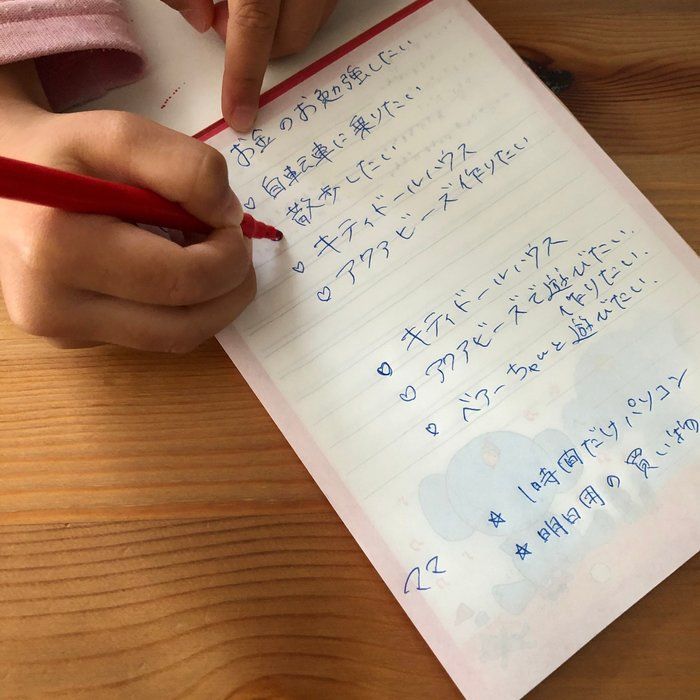 お金のお勉強したい
♡ 自転車に乗りたい
散歩したい
♡ キティドールハウス
♡ アクアビーズ作りたい
♡ キティドールハウス
♡ アクアビーズで遊びたい.
作りたい.
♡ ベアーちゃんと遊びたい.
ママ
☆ 1時間だけパソコン
☆ 明日用の買いもの